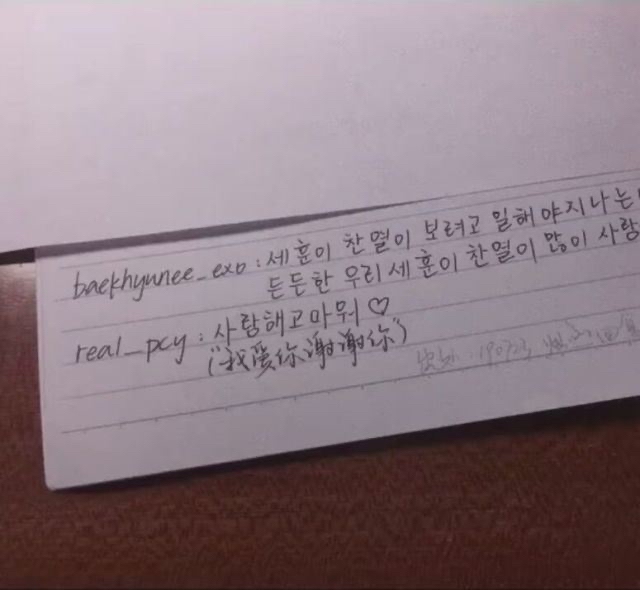 baekhyunee_exo : 세훈이 찬열이 보려고 일해야지나는
든든한 우리세훈이 찬열이 많이 사랑
real_pcy : 사랑해고마워♡
("我爱你谢谢你")